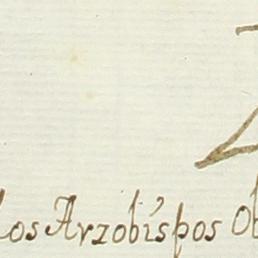 los Arzobispos Ob